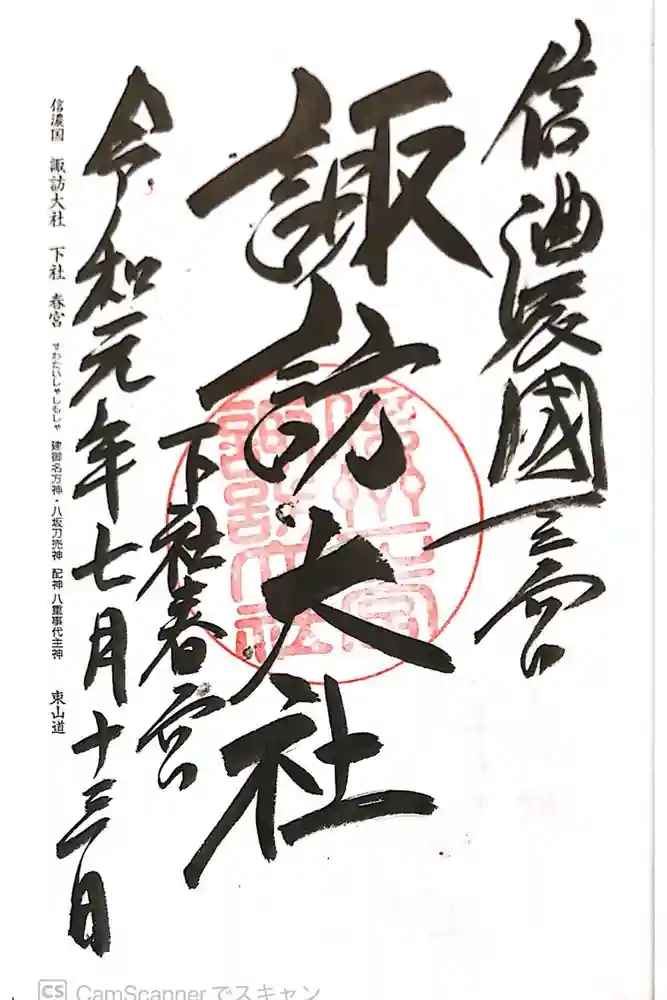 信濃國一之宮
諏訪大社
下社春宮
令和元年七月十三日
信州一宮
諏訪大社
信濃国 諏訪大社 下社 春宮 すわたいしゃしもしゃ 建御名方神・八坂刀売神 配神 八重事代主神 東山道
CS CamScanner でスキャン